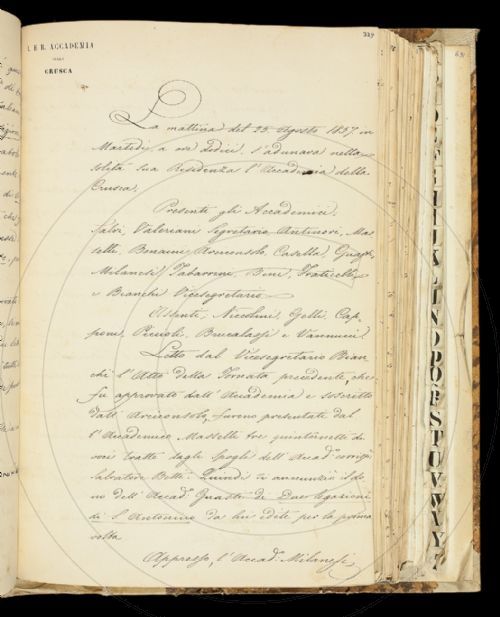 I. E R. ACCADEMIA
DELLA
CRUSCA
229
La mattina del 25 Agosto 1857 in
Martedì a ore dodici s'adunava nella
solita sua Residenza l'Accademia della
Crusca.
Presenti gli Accademici:
Fabri, Valeriani Segretario Antinori, Mas
selli, Bonaini Arciconsolo, Casella, Guasti
Milanesi, Tabarrini, Bini, Fraticelli,
e Bianchi Vicesegretario
Assenti, Niccolini, Gelli, Cap-
poni, Piccioli, Brucalassi e Vannucci
Letto dal Vicesegretario Bian
chi l'Atto della Tornata precedente, che
fu approvato dall'Accademia e soscritto
dall'Arciconsolo, furono presentate dal
l'Accademico Masselli tre
tratte dagli Spogli dell'Accad.º
Salvatore Betti. Quindi si annunziò il do
no dell'Accad.º Guasti di Due
di S. Antonino da lui edite per la prima
volta
Appresso, l'Accad.º Milanesi,